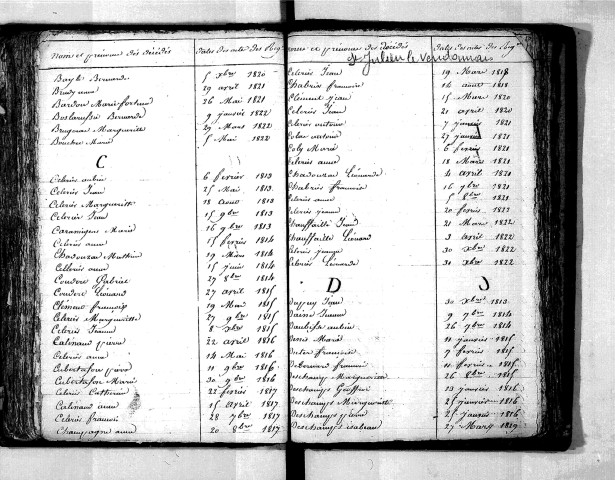 Noms et prénoms des décédés Dates des actes des Reg.
Bayle Bernarde 5 xbre 1820
Brudy anne 29 avril 1821
Bardon Marie-fortunée 26 Mai 1821
Boslaruffie Bernarde 9 janvier 1822
Brugeeau Marguerite 29 Mars 1822
Bouchu Marie 5 Mai 1822
C
Celerier aubin 6 fevrier 1813
Celerier Jean 25 Mai 1813
Celerier Marguerite 18 aout 1813
Celerier Jean 15 9bre 1813
Caramigeas Marie 16 9bre 1813
Celerier anne 15 fevrier 1814
Chadouzac Mathieu 19 Mars 1814
Cellerier anne 15 juin 1814
Couderc Gabriel 27 8bre 1814
Couderc Léonard 27 avril 1815
Clément françois 19 Mai 1815
Celerier Marguerite 27 9bre 1815
Celerier Jeanne 8 xbre 1815
Catinaud pierre 22 avril 1816
Celerier anne 14 Mai 1816
Cubertafon pierre 11 9bre 1816
Cubertafon Marie 30 9bre 1816
Celerier Catherine 22 fevrier 1817
Catinaud anne 15 avril 1817
Celerier francois 28 7bre 1817
Champagne anne 20 8bre 1817
Noms et prénoms des décédés Dates des actes des Reg.
St Julien le Vendonnais
Celerier Jean 19 Mars 1818
Chabrier francois 14 aout 1818
Clement Jean 15 Mars 1820
Celerier Jean 21 avril 1820
Celerier antoine 7 janvier 1821
Colas antoine 25 janvier 1821
Coly Marie 6 fevrier 1821
Celerier anne 18 Mars 1821
Chadouzac Léonarde 4 avril 1821
Chabrier francois 16 9bre 1821
Celerier anne 5 8bre 1821
Celerier jeanne 20 fevrier 1822
Chauffaille Jean 21 Mars 1822
Chauffaille Léonard 3 avril 1822
Celerier jeanne 30 xbre 1822
Celerier Léonarde 30 xbre 1822
D
Dupuy Jean 30 xbre 1813
Dains Jeanne 9 7bre 1814
Daubisse aubin 26 9bre 1814
Denis Marie 11 janvier 1815
Duter françois 7 fevrier 1815
DeBernard francois 11 fevrier 1815
Deschamps Marguerite 26 8bre 1815
Deschamps Geoffroi 13 janvier 1816
Deschamps Marguerite 25 janvier 1816
Deschamps pierre 25 janvier 1816
Deschamps isabeau 27 Mars 1819